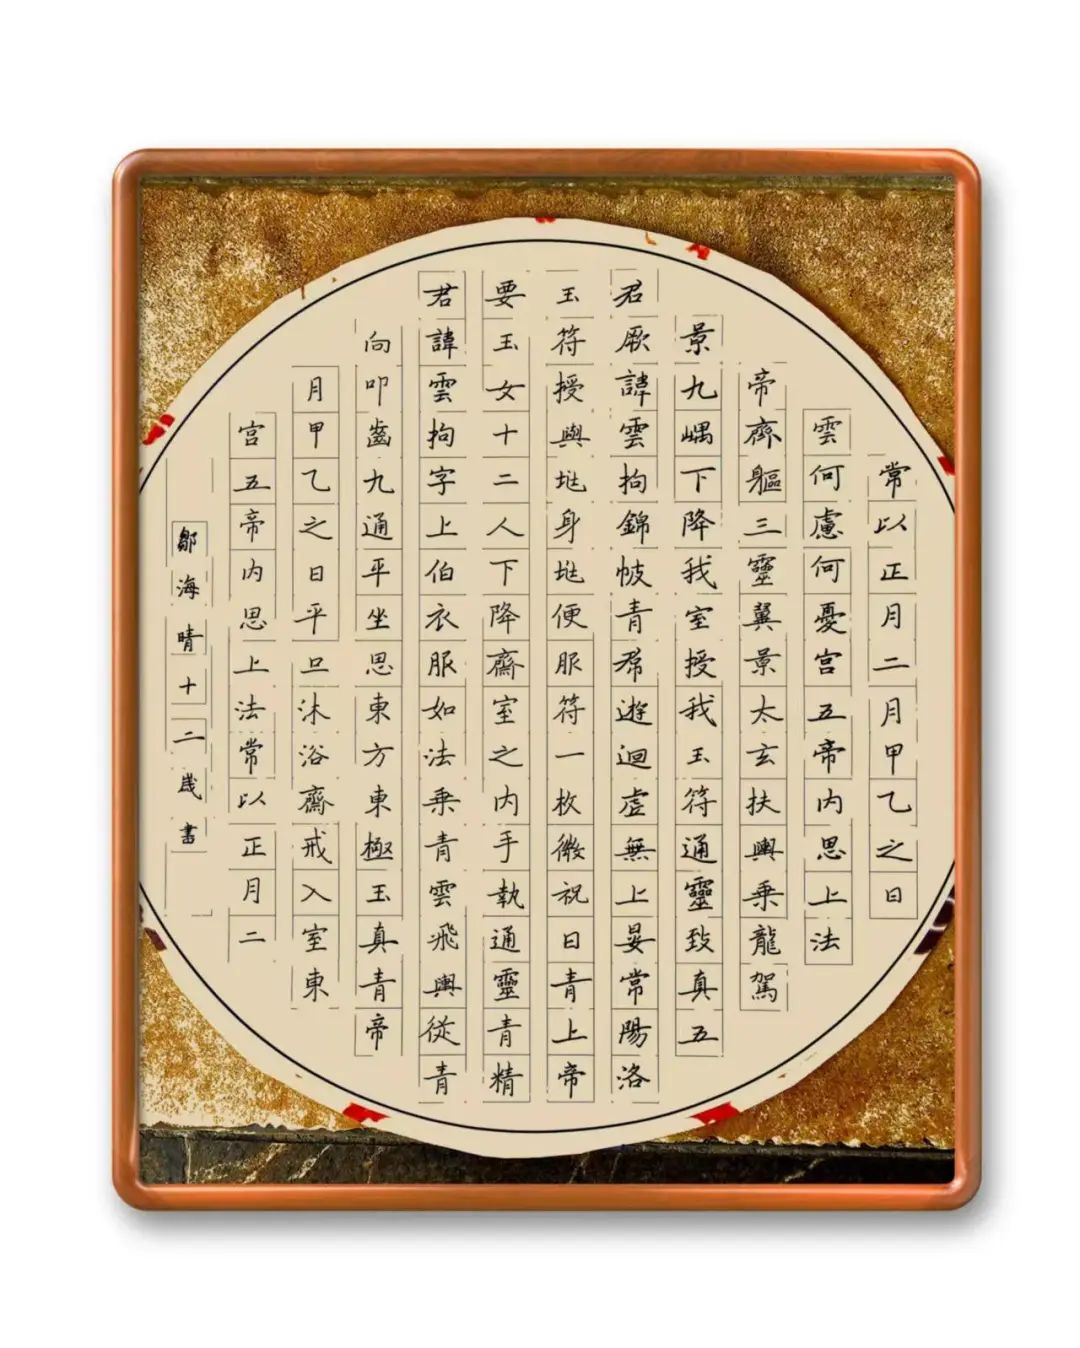 常以正月二月甲乙之日
雲何慮何憂宮五帝内思上法
帝齊軀三靈翼景太玄扶輿乗龍駕
景九嵎下降我室授我玉符通靈致真五
君厥諱雲拘錦帔青帬遊迴虚無上晏常陽洛
玉符授與身便服符一枚微祝曰青上帝
要玉女十二人下降齋室之内手執通靈青精
君諱雲拘字上伯衣服如法乗青雲飛輿從青
向叩齒九通平坐思東方東極玉真青帝
月甲乙之日平旦沐浴齋戒入室東
宮五帝内思上法常以正月二
鄒海晴十二歲書